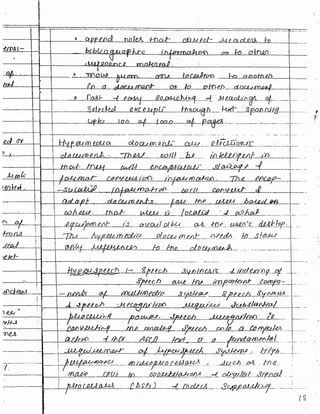 • append notes that direct readers to
bibliographic information or to other
reference material.
• move from one location to another
in a document or to other document
• Fast & easy searching & reading of
selected excerpts through text spanning
upto 100 or 1000 of pages.
Hypermedia documents are electronic
documents. There will be intelligent in
that they will encapsulate storage &
format conversion information. The encap-
-sulated information will convert &
adapt documents for the users based on
where that user is located & what
equipment is available on the user's desktop.
The hypermedia document needs to store
only references to the document.
Hyperspeech :- Speech synthesis & indexing of
speech are the important compo-
-nents of multimedia systems. Speech synthesis
& speech recognition require substantial
processing power. Speech recognition is
converting the analog speech into a computer
action & into ASCII text, is a fundamental
requirement of hyperspeech systems. High
performance microprocessors, such as the
main CPUs in workstations & digital signal
processors (DSPs) & codecs supporting